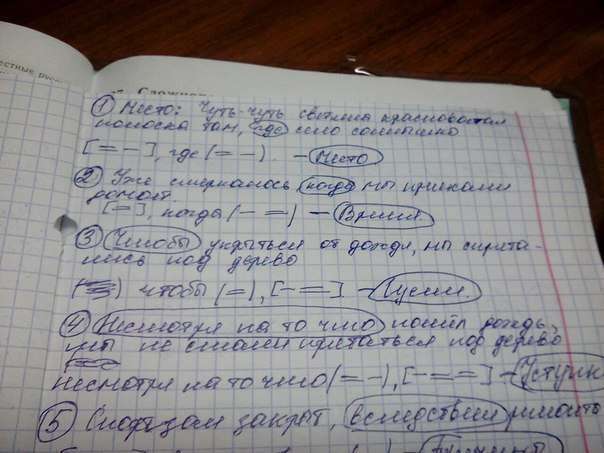 Сложно
① Место: Чуть-чуть светила красноватая
полоска там, где село солнышко
[= –], где (= –). – Место
② Уже смеркалось когда мы приехали
домой.
[=], когда (– =) – Время.
③ Чтобы укрыться от дождя, мы спрята-
лись под дерево
чтобы (=), [– =] –
④ Несмотря на то что пошёл дождь,
мы не стали прятаться под дерево
несмотря на то что (= –), [– = =] – Уступк
⑤ закрыт, вследствии ремонта